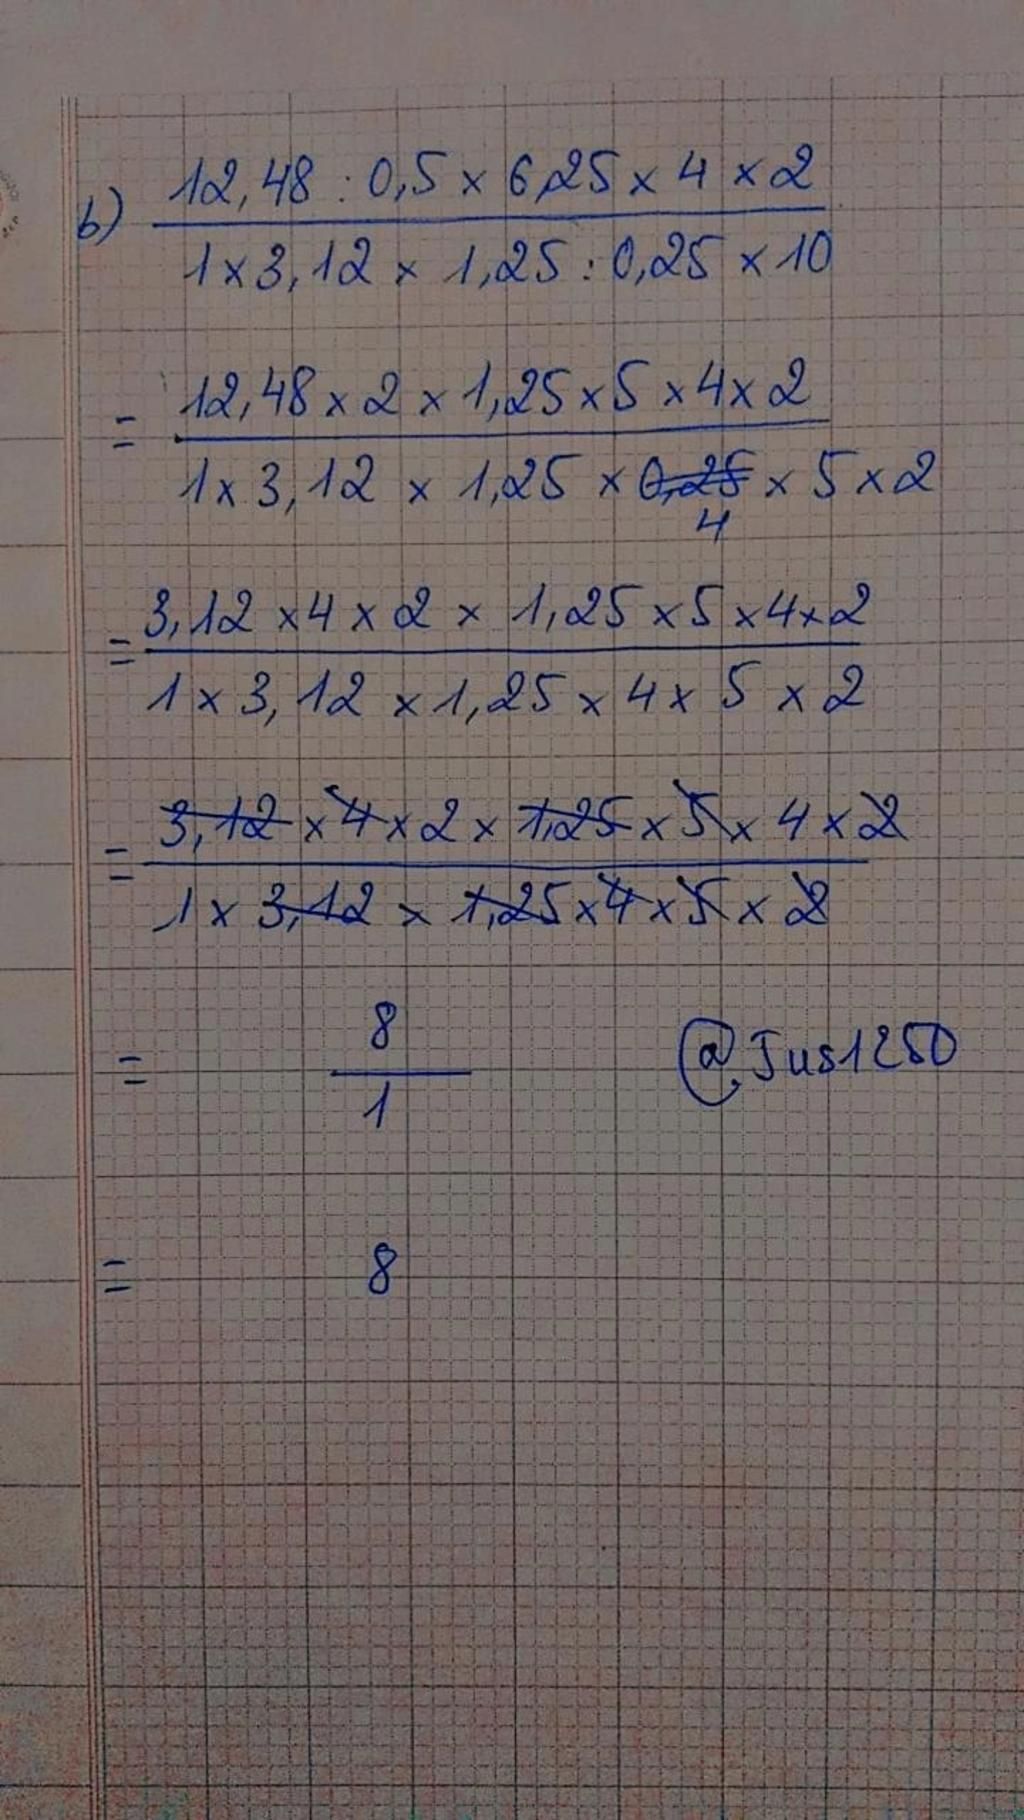 b) 12,48 : 0,5 × 6,25 × 4 × 2
1 × 3,12 × 1,25 : 0,25 × 10
= 12,48 × 2 × 1,25 × 5 × 4 × 2
1 × 3,12 × 1,25 × 0,25 × 5 × 2
4
= 3,12 × 4 × 2 × 1,25 × 5 × 4 × 2
1 × 3,12 × 1,25 × 4 × 5 × 2
= 3,12 × 4 × 2 × 1,25 × 5 × 4 × 2
1 × 3,12 × 1,25 × 4 × 5 × 2
= 8
1
@Jus1250
= 8